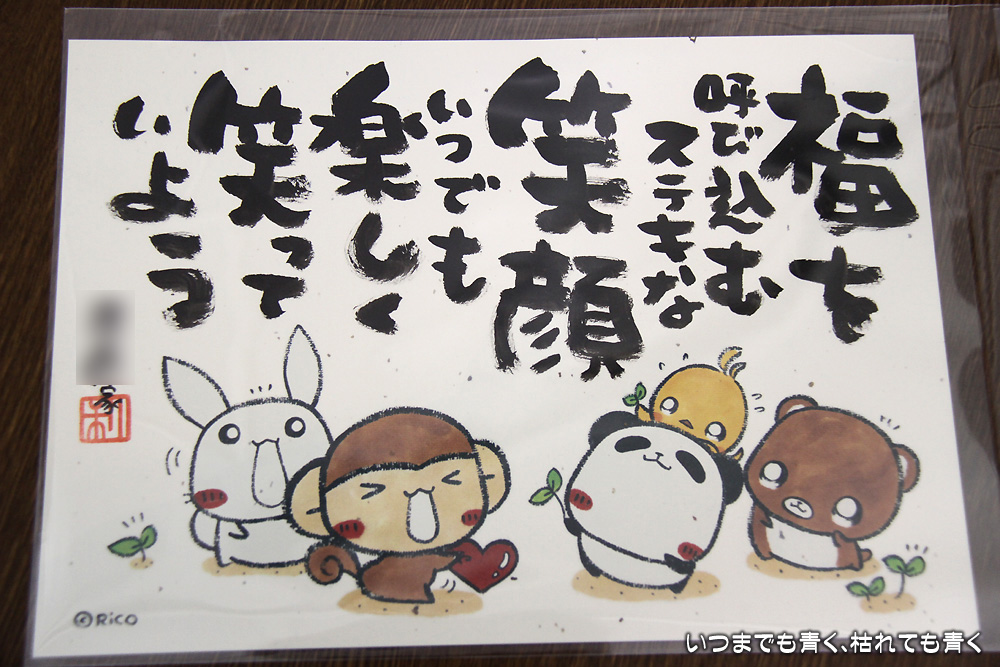 福を
呼び込む
ステキな
笑顔
いつでも
楽しく
笑って
いよう
家
©RiCO
いつまでも青く、枯れても青く